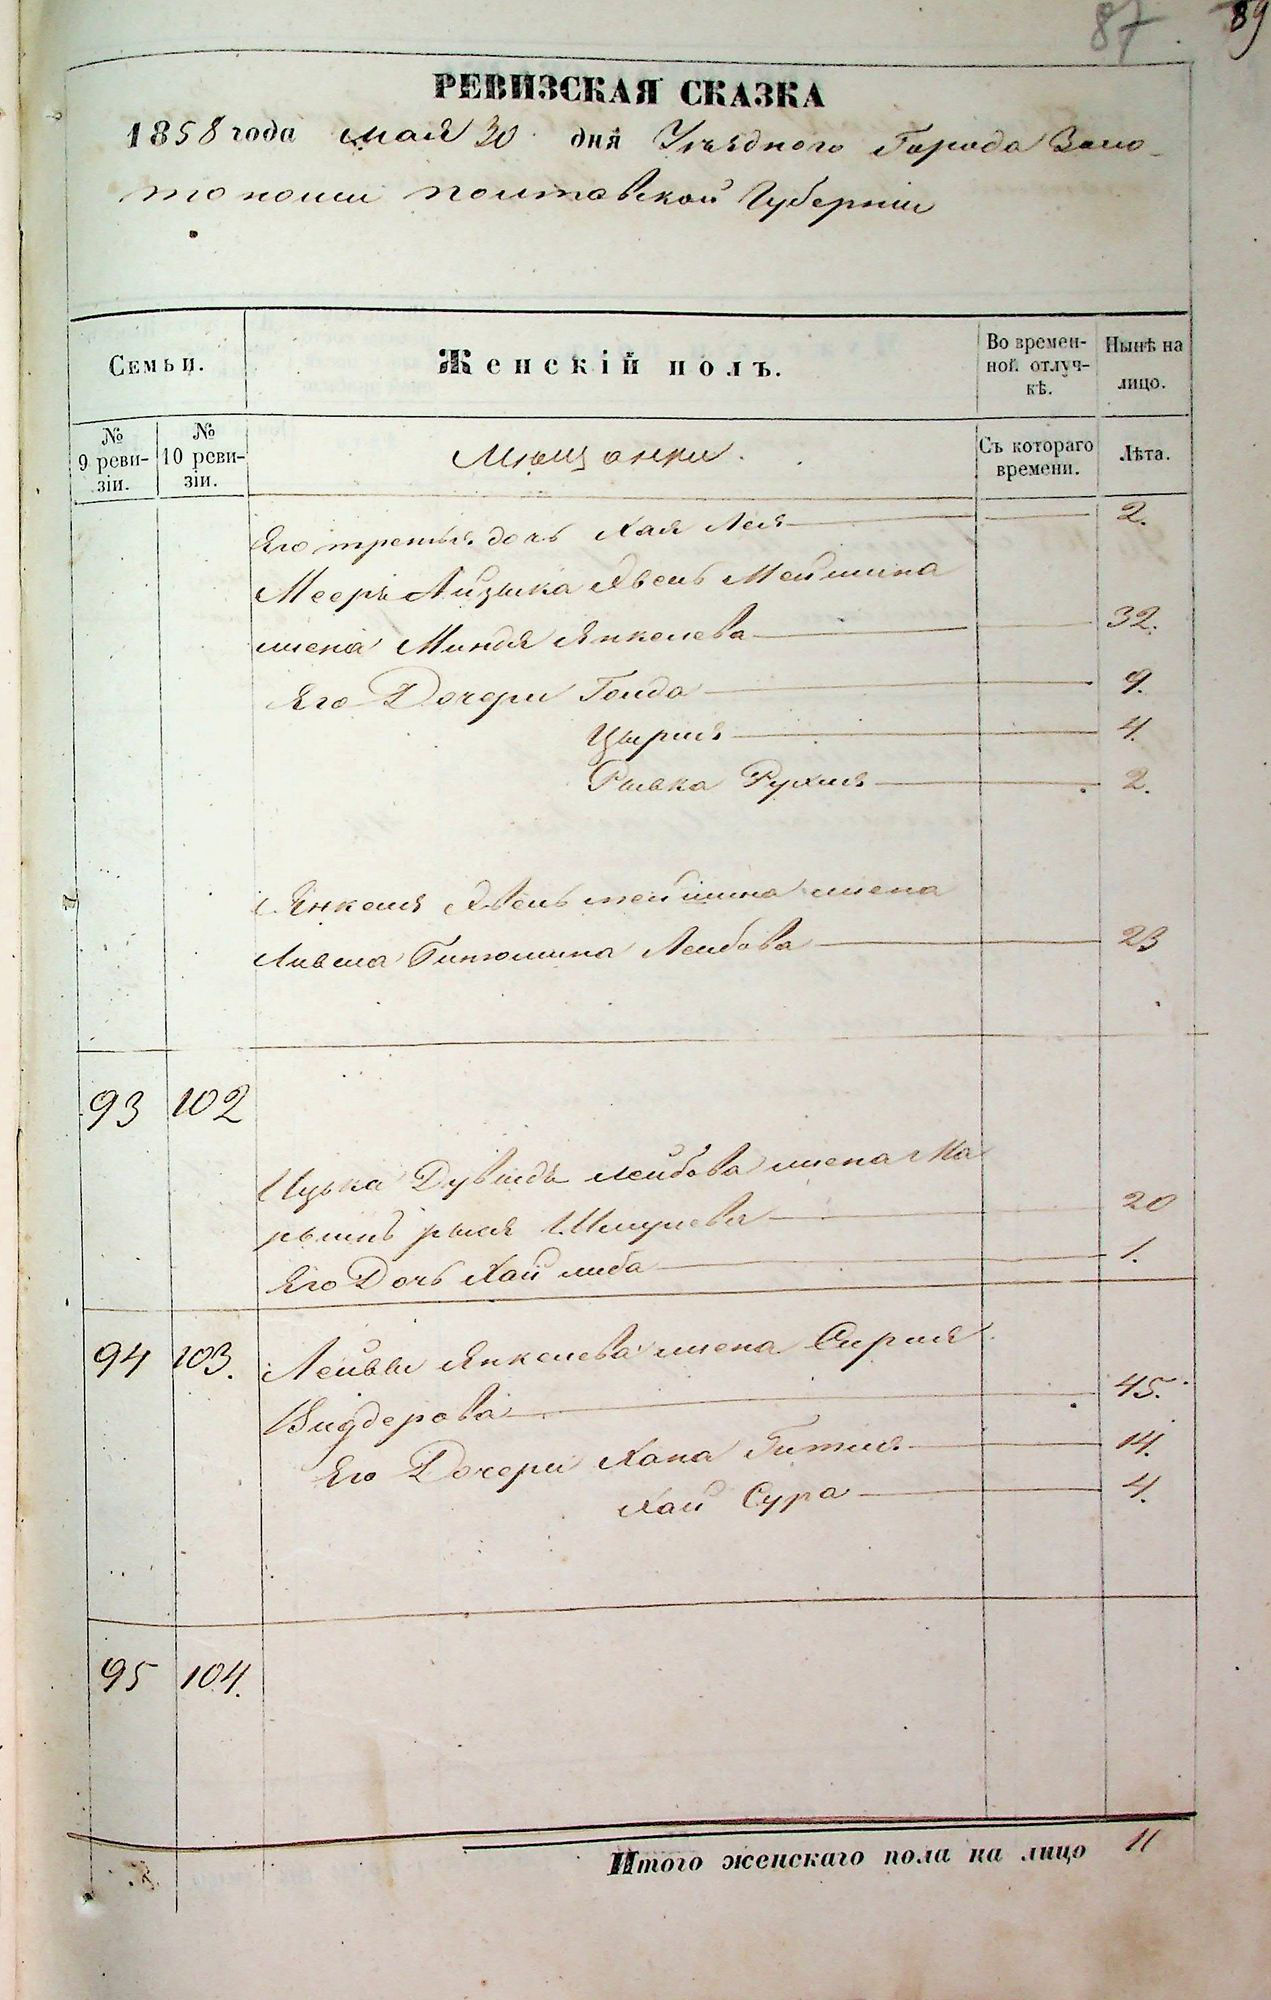 87. 89
РЕВИЗСКАЯ СКАЗКА
1858 года мая 30 дня Уѣзднаго Города Золо-
тоноши Полтавской Губерніи
Семьи.
Женскій полъ.
Во времен-
ной отлуч-
кѣ.
Нынѣ на
лицо.
№
9 реви-
зіи.
№
10 реви-
зіи.
Мѣщанки.
Съ котораго
времени.
Лѣта.
Его третья дочь Хая Лея 2.
Меера Айзыка
жена Миндя Янкелева 32.
Его Дочери Голда 9.
Цырля 4.
Рывка Рухля 2.
Янкеля жена
Лейбова 23
93 102
Ицька Дувидъ Лейбова жена Ма
рьямъ рыся Шмулева 20
Его Дочь Хай либа 1.
94 103. Лейбы Янкелева жена Сирля
45.
Его Дочери Хана Гитля 14.
Хай Сура 4.
95 104.
Итого женскаго пола на лицо 11